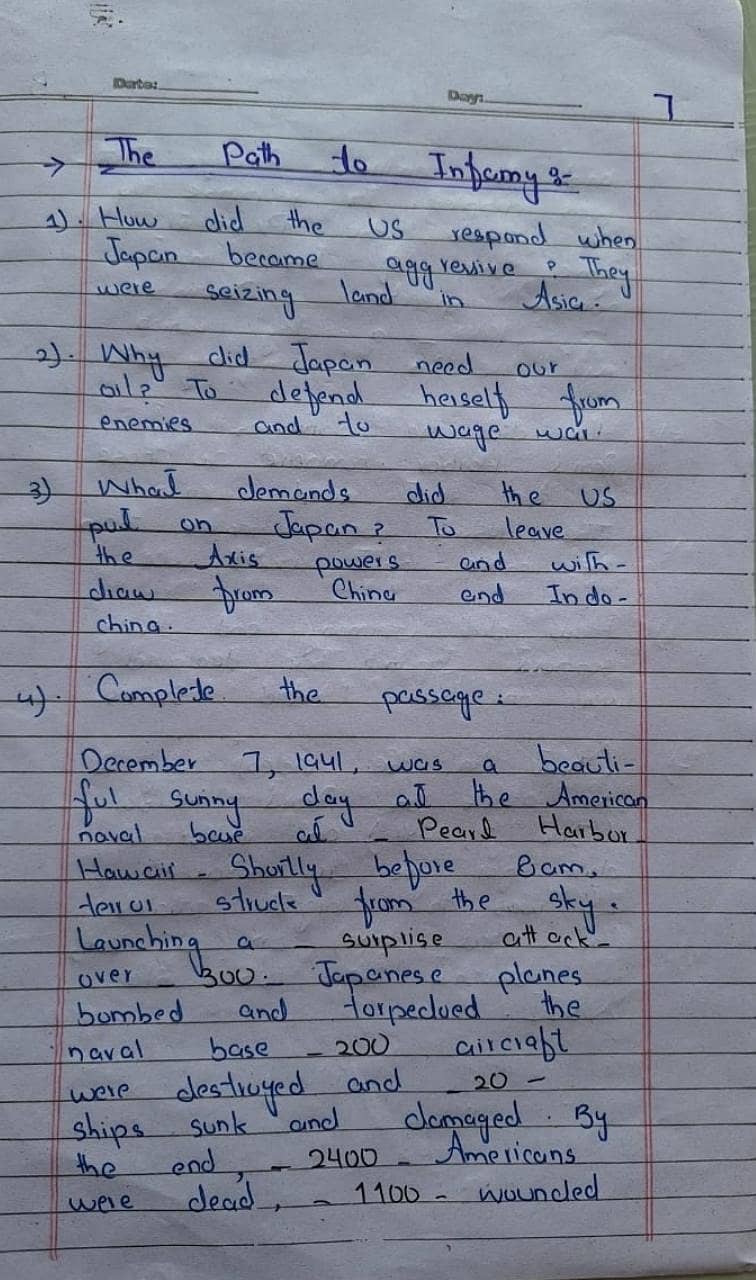 Date:
Day:
7
→ The Path to Infamy :-
1). How did the US respond when
Japan became aggressive ? They
were seizing land in Asia.
2). Why did Japan need our
oil? To defend herself from
enemies and to wage war.
3) What demands did the US
put on Japan? To leave
the Axis powers and with-
draw from China and Indo-
china.
4). Complete the passage :
December 7, 1941, was a beauti-
ful sunny day at the American
naval base at - Pearl Harbor
Hawaii - Shortly before 8am,
terror struck from the sky.
Launching a - surprise attack -
over - 300. Japanese planes
bombed and torpedoed the
naval base - 200 aircraft
were destroyed and - 20 -
ships sunk and damaged. By
the end, - 2400 - Americans
were dead, - 1100 - wounded